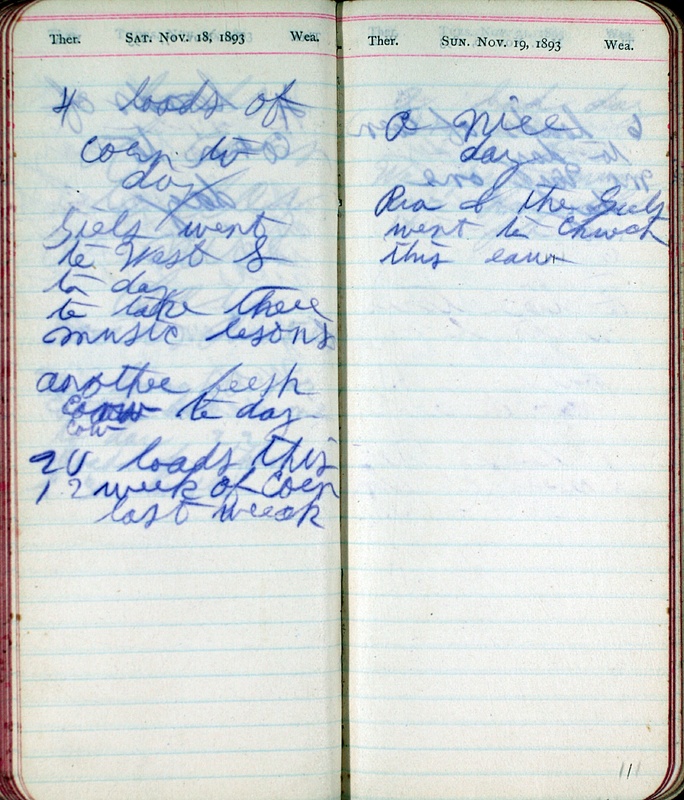 Ther. SAT. NOV. 18, 1893 Wea.
4 loads of
Corn to
day
Girls went
to West S
to day
to take there
music lesons
another fresh
Cow to day
Cow
20 loads this
12 week of Corn
last weeak
Ther. SUN. NOV. 19, 1893 Wea.
a Nice
day
& the Girls
went to Church
this
111